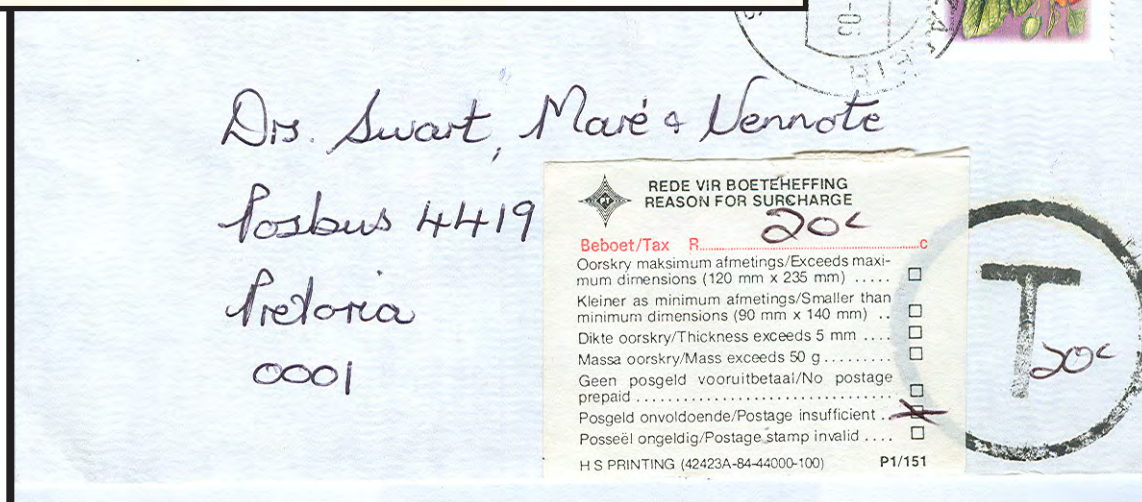 Drs. Swart, Maré & Vennote
Posbus 4419
Pretoria
0001
REDE VIR BOETEHEFFING
REASON FOR SURCHARGE
Beboet/Tax R 20c c
Oorskry maksimum afmetings/Exceeds maxi-
mum dimensions (120 mm x 235 mm) .....
Kleiner as minimum afmetings/Smaller than
minimum dimensions (90 mm x 140 mm) ..
Dikte oorskry/Thickness exceeds 5 mm ....
Massa oorskry/Mass exceeds 50 g .........
Geen posgeld vooruitbetaal/No postage
prepaid ................................
Posgeld onvoldoende/Postage insufficient ..
Posseël ongeldig/Postage stamp invalid ....
H S PRINTING (42423A-84-44000-100) P1/151
T
20c